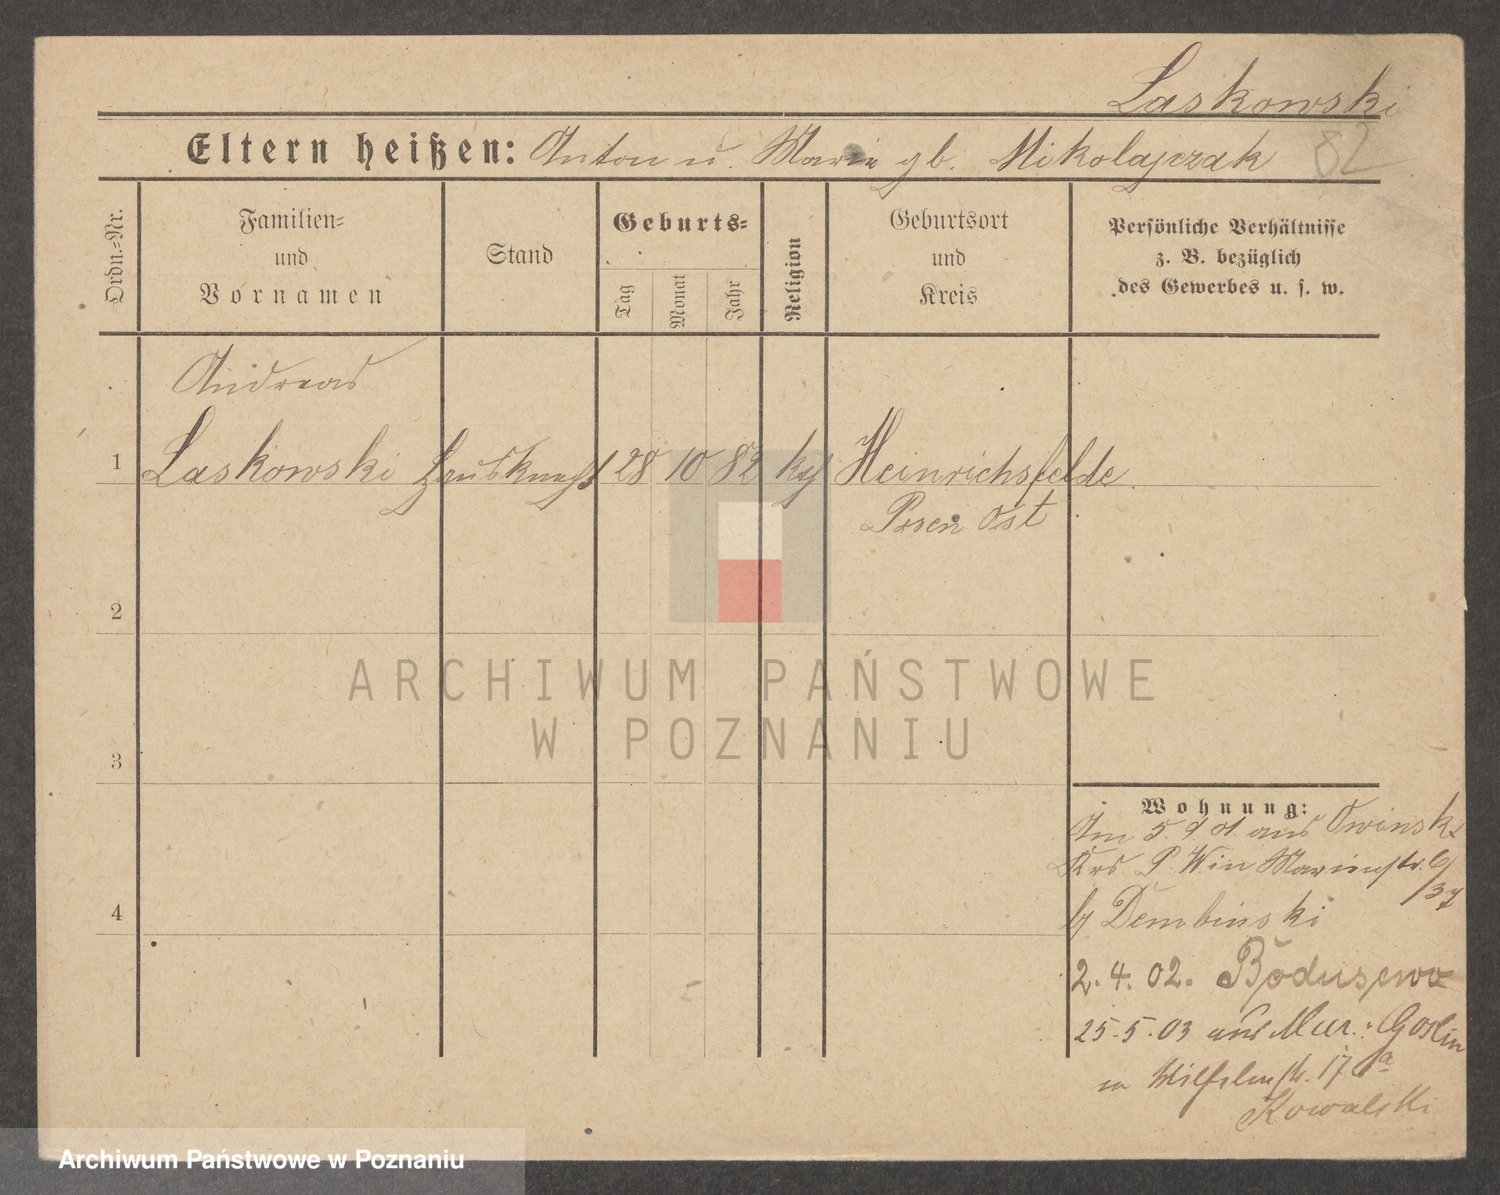 Laskowski
Eltern heißen: Anton u. Marie gb. Mikolajczak
82
Ordn.=Nr.
Familien=
und
Vornamen
Stand
Geburts=
Tag
Monat
Jahr
Religion
Geburtsort
und
Kreis
Persönliche Verhältnisse
z. B. bezüglich
des Gewerbes u. s. w.
Andreas
1 Laskowski Hausknecht 28 10 82 kth Heinrichsfelde
Posen Ost
2
ARCHIWUM PAŃSTWOWE
W POZNANIU
3
Wohnung:
Am 5. 9 01. aus Owinsk
Krs P. W. in Marienstr. 6
/37
b/ Dembinski
4
2. 4. 02. Boduszewo
25.5.03 aus Mur.: Goslin
in Wilhelmstr. 17a
Kowalski
Archiwum Państwowe w Poznaniu